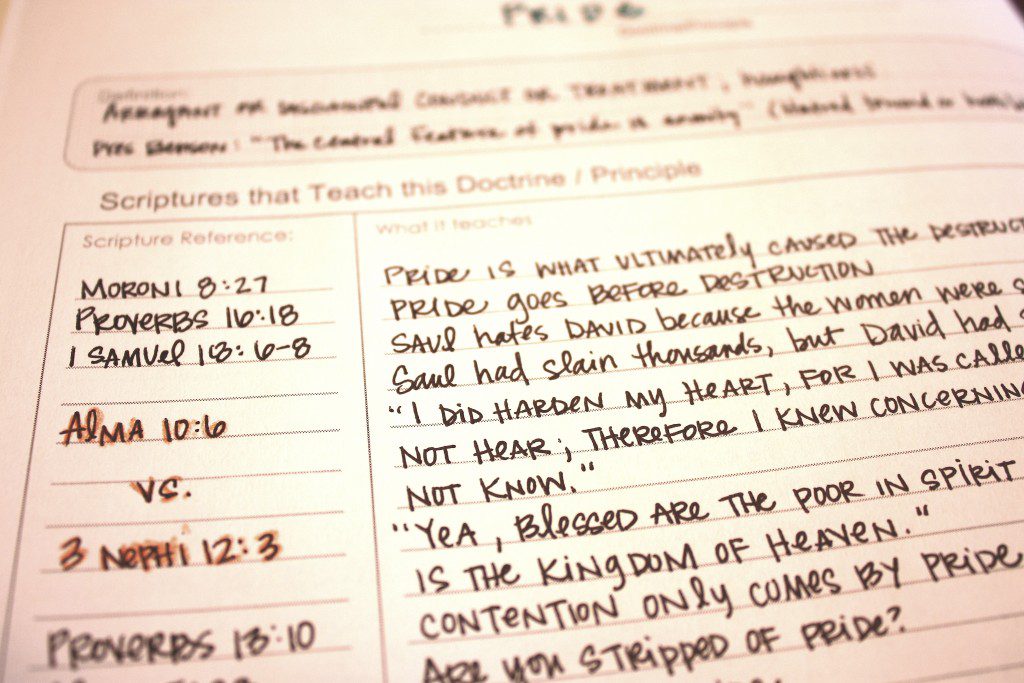 PRIDE
Definition:
ARROGANT OR CONDUCT OR TREATMENT; haughtiness
Pres Benson: "The central feature of pride is enmity"
Scriptures that Teach this Doctrine / Principle
Scripture Reference: What it teaches
MORONI 8:27 PRIDE IS WHAT ULTIMATELY CAUSED THE
PROVERBS 16:18 PRIDE goes BEFORE DESTRUCTION
1 SAMUEL 18:6-8 SAUL hates DAVID because the women were
Saul had slain thousands, but David had
ALMA 10:6 "I DID HARDEN MY HEART, FOR I WAS
NOT HEAR; THEREFORE I KNEW
VS. NOT KNOW."
3 NEPHI 12:3 "YEA, BLESSED ARE THE POOR IN SPIRIT
IS THE KINGDOM OF HEAVEN."
PROVERBS 13:10 CONTENTION ONLY COMES BY PRIDE
ARE YOU STRIPPED OF PRIDE?